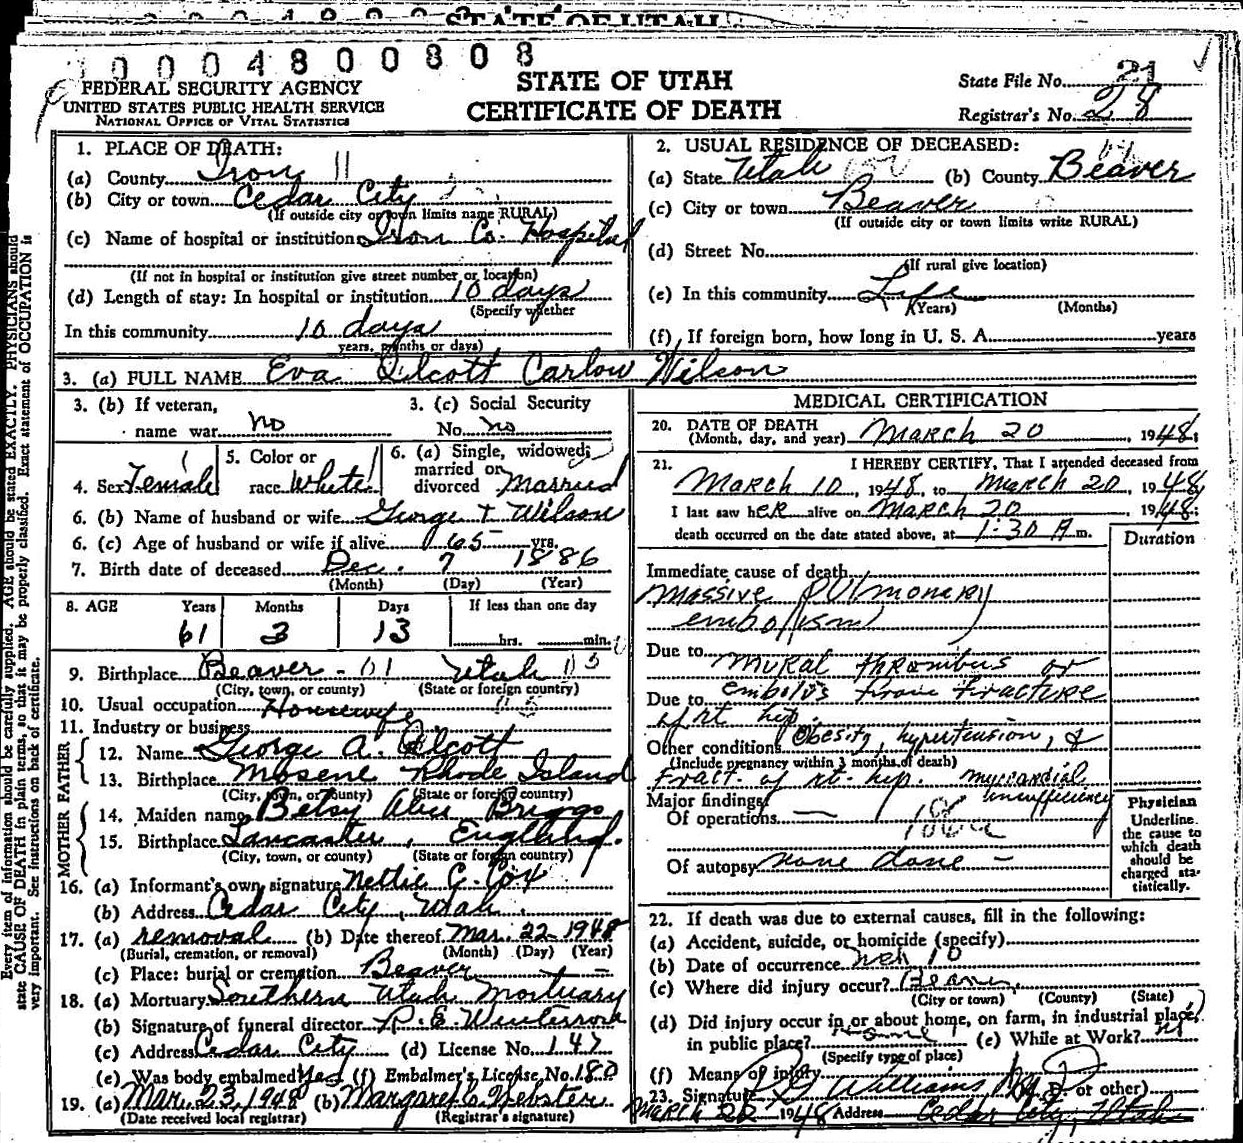 STATE OF UTAH
0004800808
FEDERAL SECURITY AGENCY
UNITED STATES PUBLIC HEALTH SERVICE
NATIONAL OFFICE OF VITAL STATISTICS
STATE OF UTAH
CERTIFICATE OF DEATH
State File No. 21
Registrar's No. 28
1. PLACE OF DEATH:
(a) County Iron 11
(b) City or town Cedar City
(If outside city or town limits name RURAL)
(c) Name of hospital or institution Iron Co. Hospital
(If not in hospital or institution give street number or location)
(d) Length of stay: In hospital or institution 10 days
(Specify whether
In this community 10 days
years, months or days)
2. USUAL RESIDENCE OF DECEASED:
(a) State Utah (b) County Beaver
(c) City or town Beaver
(If outside city or town limits write RURAL)
(d) Street No.
(If rural give location)
(e) In this community Life
(Years) (Months)
(f) If foreign born, how long in U. S. A. years
3. (a) FULL NAME Eva Olcott Carlow Wilson
3. (b) If veteran,
name war no
3. (c) Social Security
No. no
4. Sex Female
5. Color or
race White
6. (a) Single, widowed,
married or
divorced Married
6. (b) Name of husband or wife George T Wilson
6. (c) Age of husband or wife if alive 65 yrs.
7. Birth date of deceased Dec. 7 1886
(Month) (Day) (Year)
8. AGE Years Months Days If less than one day
61 3 13 hrs. min.
9. Birthplace Beaver - Utah
(City, town, or county) (State or foreign country)
10. Usual occupation Housewife
11. Industry or business
FATHER
12. Name George A. Olcott
13. Birthplace Rhode Island
(City, town, or county) (State or foreign country)
MOTHER
14. Maiden name Betsy Alice Briggs
15. Birthplace Lancaster, England.
(City, town, or county) (State or foreign country)
16. (a) Informant's own signature Nettie C. Cox
(b) Address Cedar City, Utah.
17. (a) removal (b) Date thereof Mar. 22 1948
(Burial, cremation, or removal) (Month) (Day) (Year)
(c) Place: burial or cremation Beaver
18. (a) Mortuary Southern Utah Mortuary
(b) Signature of funeral director
(c) Address Cedar City (d) License No. 147
(e) Was body embalmed Yes (f) Embalmer's License No. 180
19. (a) Mar. 23, 1948 (b) Margaret Webster
(Date received local registrar) (Registrar's signature)
MEDICAL CERTIFICATION
20. DATE OF DEATH
(Month, day, and year) March 20, 1948;
21. I HEREBY CERTIFY, That I attended deceased from
March 10, 1948, to March 20, 1948
I last saw her alive on March 20, 1948;
death occurred on the date stated above, at 1:30 A m.
Duration
Immediate cause of death
Massive Pulmonary
embolism
Due to mural thrombus or
Due to embolus from fracture
of rt hip.
Other conditions Obesity, hypertension, &
(Include pregnancy within 3 months of death)
Fract. of rt. hip. myocardial
insufficiency
Major findings:
Of operations —
Of autopsy none done -
Physician
Underline
the cause to
which death
should be
charged sta-
tistically.
22. If death was due to external causes, fill in the following:
(a) Accident, suicide, or homicide (specify)
(b) Date of occurrence 10
(c) Where did injury occur? Beaver
(City or town) (County) (State)
(d) Did injury occur in or about home, on farm, in industrial place,
in public place? home (e) While at Work? no
(Specify type of place)
(f) Means of injury
23. Signature Williams (M. D. or other)
March 22 1948 Address Cedar City, Utah
Every item of information should be carefully supplied. AGE should be stated EXACTLY. PHYSICIANS should
state CAUSE OF DEATH in plain terms, so that it may be properly classified. Exact statement of OCCUPATION is
very important. See instructions on back of certificate.